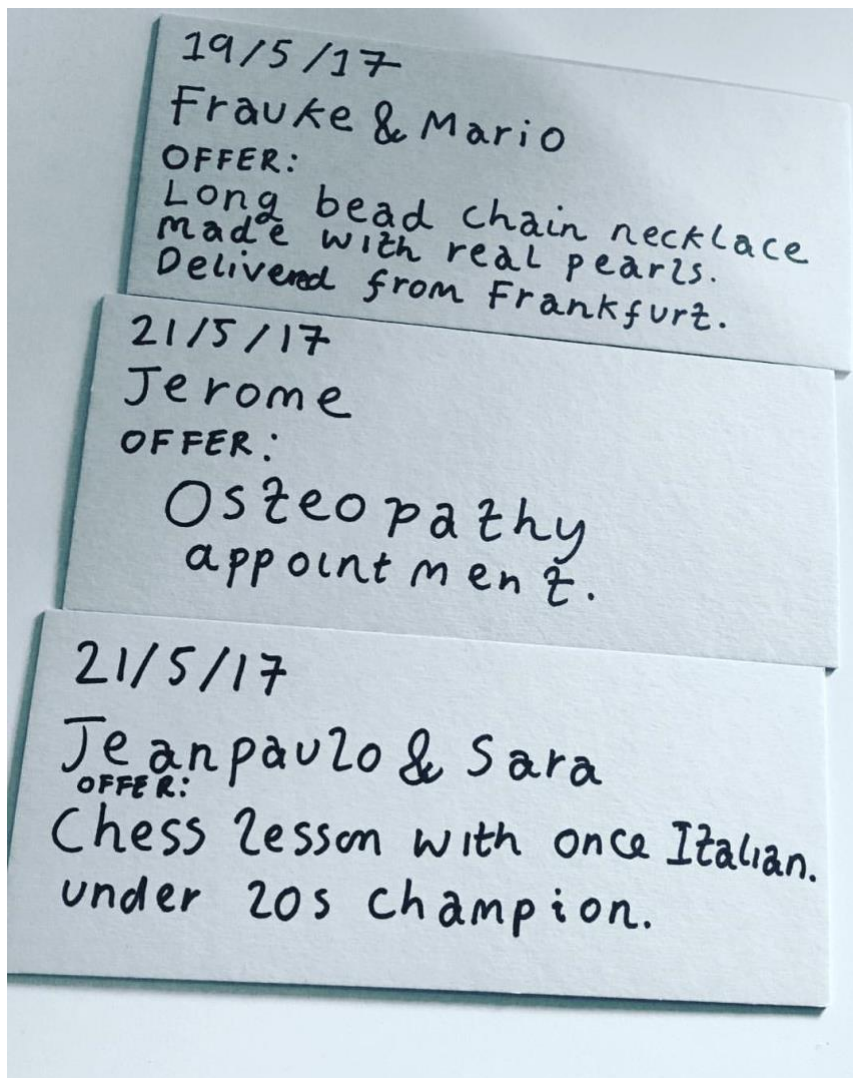 19/5/17
Frauke & Mario
OFFER:
Long bead chain necklace
made with real pearls.
Delivered from Frankfurt.
21/5/17
Jerome
OFFER:
Osteopathy
appointment.
21/5/17
Jeanpaulo & Sara
OFFER:
Chess lesson with once Italian.
under 20s champion.